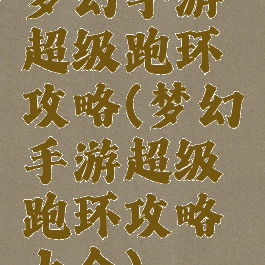 梦幻手游
超级跑环
攻略(梦幻
手游超级
跑环攻略
大全)